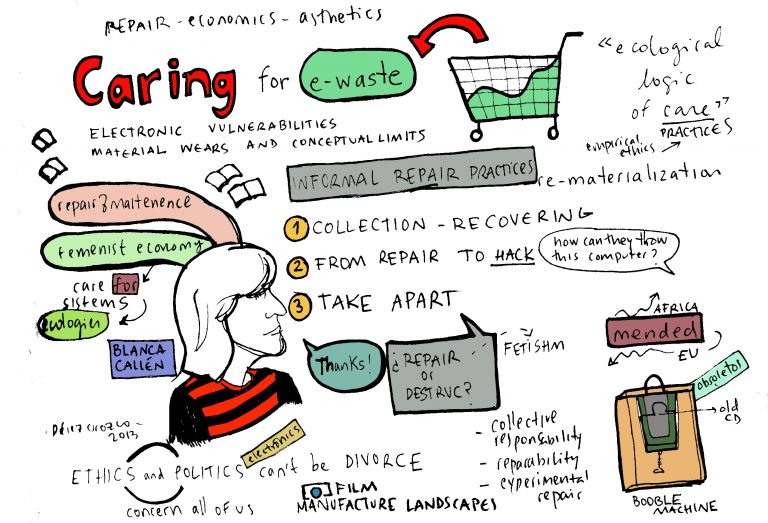 REPAIR - economics - asthetics
Caring for e-waste
"ecological
logic
of care"
PRACTICES
empirical
ethics
ELECTRONIC VULNERABILITIES
MATERIAL WEARS AND CONCEPTUAL LIMITS
INFORMAL REPAIR PRACTICES
re-materialization
repair & maitenence
femenist economy
care for
sistems
ecologies
BLANCA
CALLÉN
1 COLLECTION - RECOVERING
2 FROM REPAIR TO HACK
3 TAKE APART
how can they throw
this computer?
Thanks!
¿ REPAIR
or
DESTRUC?
FETISHM
AFRICA
mended
EU
obsoletos
old
CD
BOOBLE
MACHINE
Pérez Orozco -
2013
electronics
ETHICS and POLITICS can't be DIVORCE
concern all of us
FILM
MANUFACTURE LANDSCAPES
- collective
responsability
- reparability
- experimental
repair